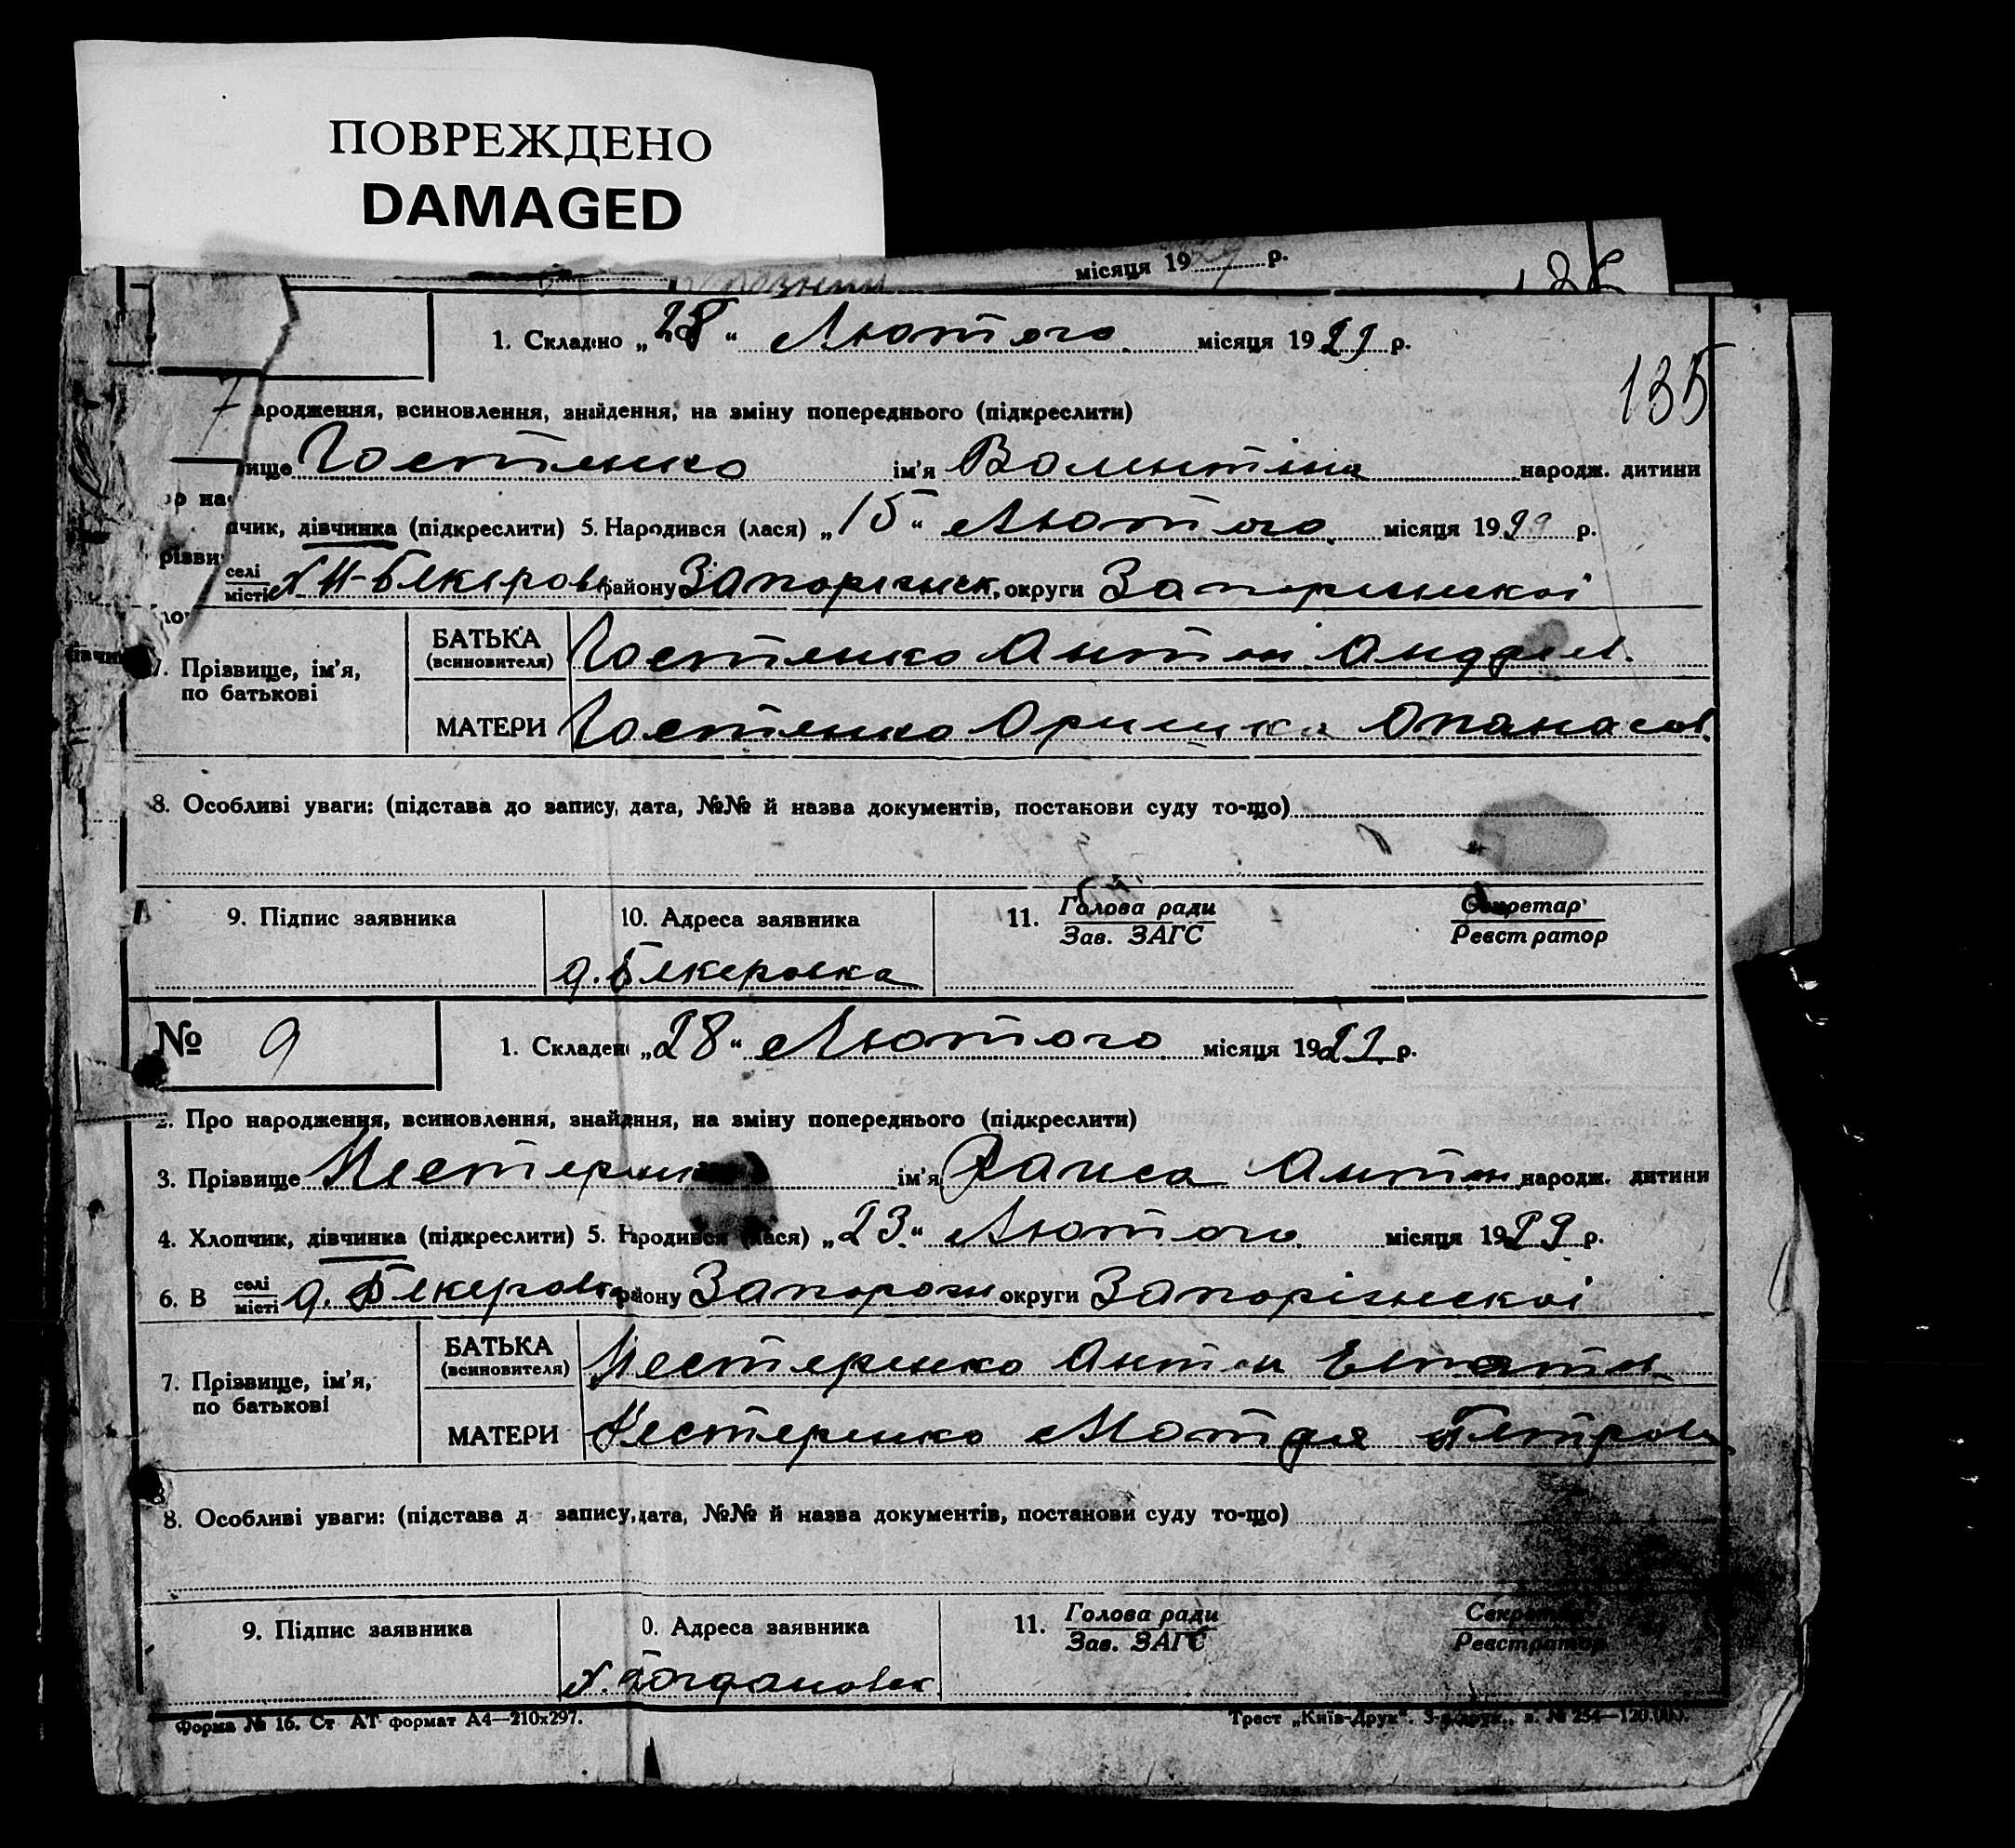 ПОВРЕЖДЕНО
DAMAGED
місяця 19 р.
1. Складено „28“ Лютого місяця 1929 р.
135
ародження, всиновлення, знайдення, на зміну попереднього (підкреслити)
вище Гостенко ім’я Валентіна народж. дитини
чик, дівчинка (підкреслити) 5. Народився (лася) „15“ Лютого місяця 1929 р.
різви
селі
місті району Запоріжск. округи Запоріжскоі
7. Прізвище, ім’я, по батькові
БАТЬКА (всиновителя) Гостенко Антон Андрєєв.
МАТЕРИ Гостенко Оришка Опанасов.
8. Особливі уваги: (підстава до запису, дата, №№ й назва документів, постанови суду то-що)
9. Підпис заявника 10. Адреса заявника 11. Голова ради Секретар
Зав. ЗАГС Реєстратор
д. Бекеровка
№ 9 1. Складен „28“ Лютого місяця 1929 р.
2. Про народження, всиновлення, знайдння, на зміну попереднього (підкреслити)
3. Прізвище ім’я Раиса Антон народж. дитини
4. Хлопчик, дівчинка (підкреслити) 5. Народився (лася) „23“ Лютого місяця 1929 р.
6. В селі
місті д. Бекеровка району Запорож округи Запоріжскоі
7. Прізвище, ім’я, по батькові
БАТЬКА (всиновителя) Нестеренко Антон
МАТЕРИ Нестеренко Мотря Петров
8. Особливі уваги: (підстава д запису, дата, №№ й назва документів, постанови суду то-що)
9. Підпис заявника 0. Адреса заявника 11. Голова ради Секретар
Зав. ЗАГС Реєстратор
х. Богдановск
Форма № 16. Ст АТ формат А4—210х297. Трест „Київ-Друк“. 3-я друк., з. № 254—120.000.